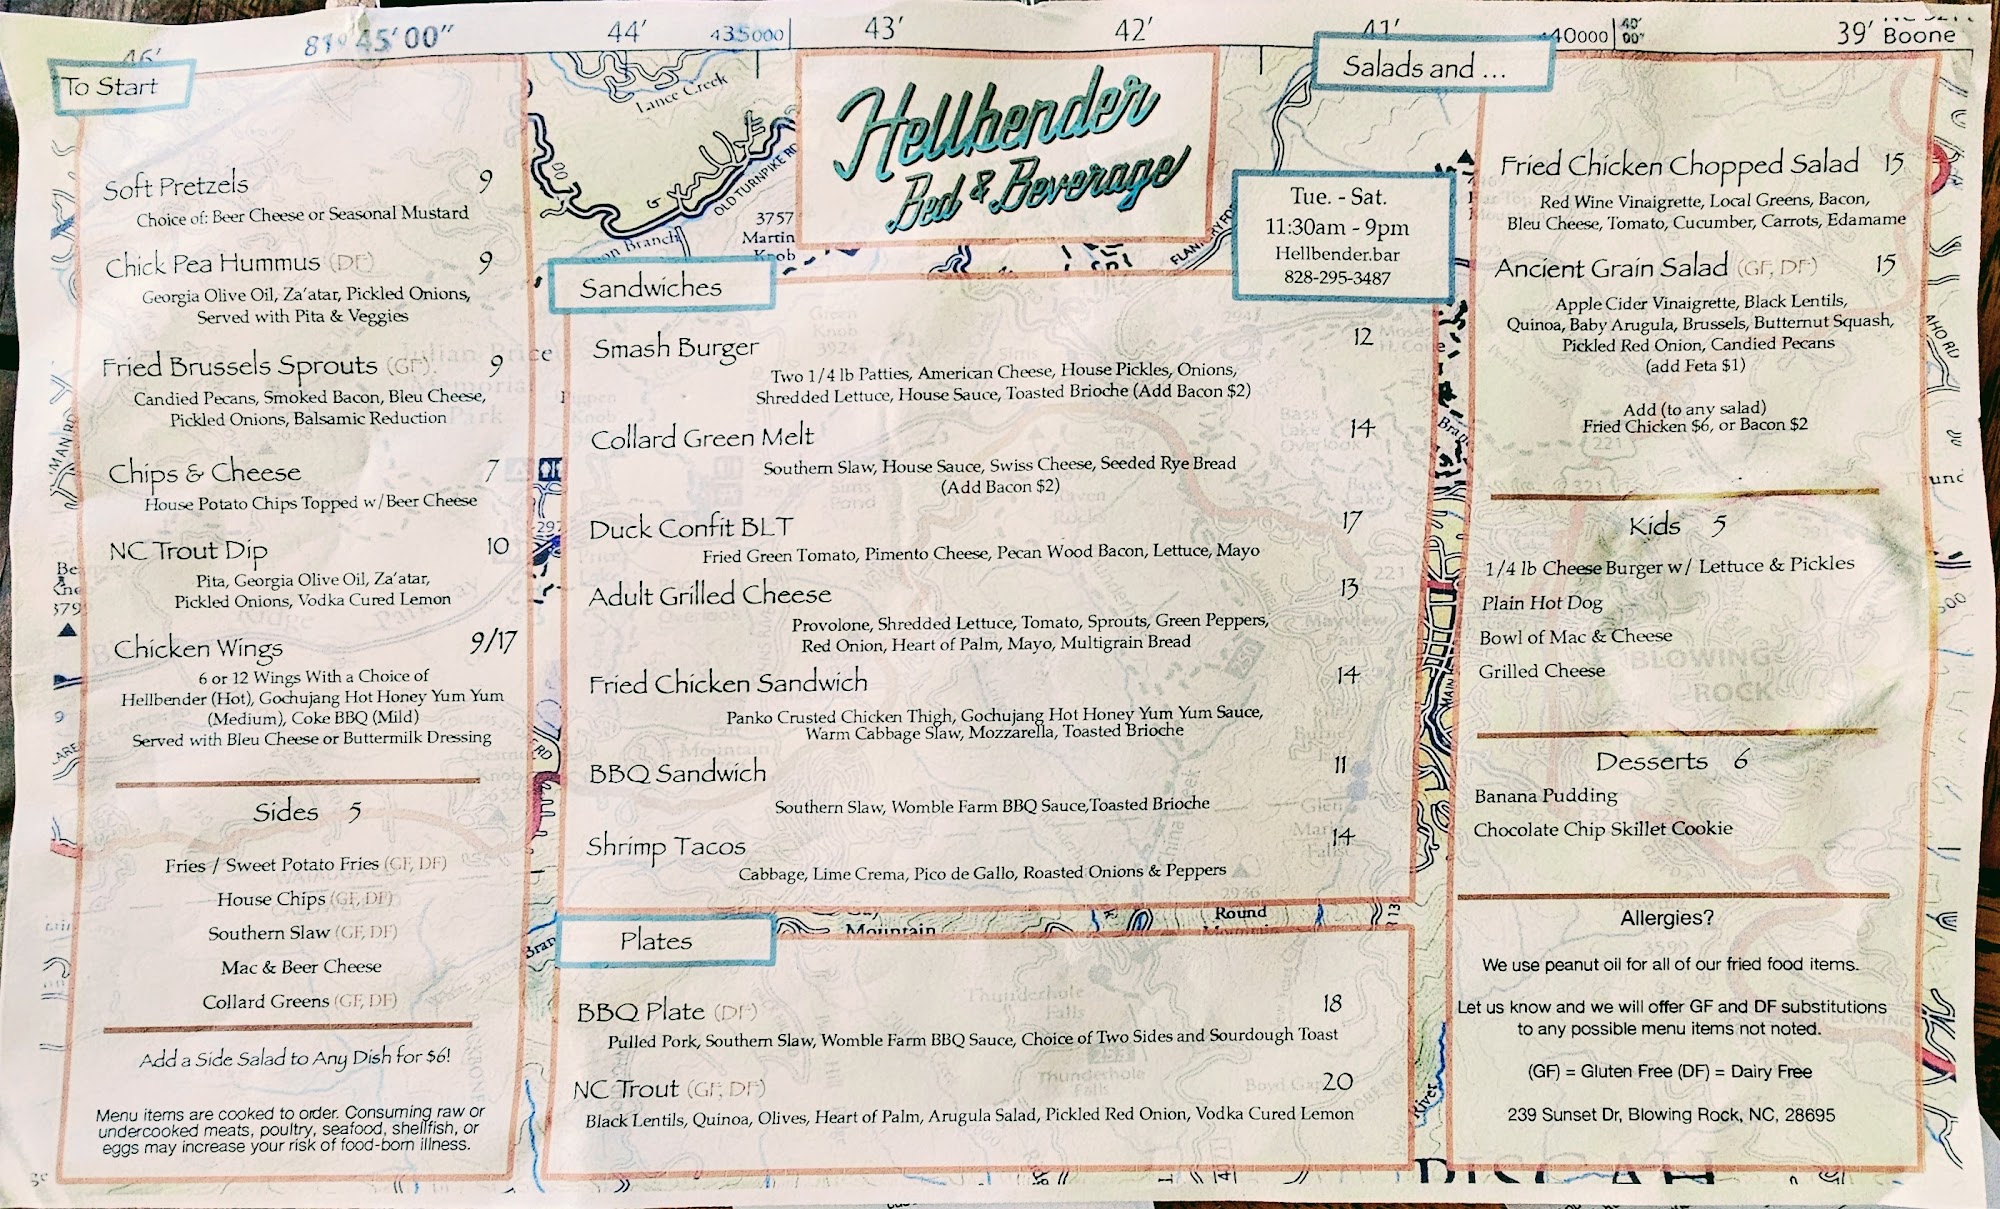 46'
81° 45' 00"
44'
435000
43'
42'
41'
40000
40'
00"
39'
Boone
To Start
Soft Pretzels 9
Choice of: Beer Cheese or Seasonal Mustard
Chick Pea Hummus (DF) 9
Georgia Olive Oil, Za'atar, Pickled Onions,
Served with Pita & Veggies
Fried Brussels Sprouts (GF). 9
Candied Pecans, Smoked Bacon, Bleu Cheese,
Pickled Onions, Balsamic Reduction
Chips & Cheese 7
House Potato Chips Topped w/Beer Cheese
NC Trout Dip 10
Pita, Georgia Olive Oil, Za'atar,
Pickled Onions, Vodka Cured Lemon
Chicken Wings 9/17
6 or 12 Wings With a Choice of
Hellbender (Hot), Gochujang Hot Honey Yum Yum
(Medium), Coke BBQ (Mild)
Served with Bleu Cheese or Buttermilk Dressing
Sides 5
Fries / Sweet Potato Fries (GF, DF)
House Chips (GF, DF)
Southern Slaw (GF, DF)
Mac & Beer Cheese
Collard Greens (GF, DF)
Add a Side Salad to Any Dish for $6!
Menu items are cooked to order. Consuming raw or
undercooked meats, poultry, seafood, shellfish, or
eggs may increase your risk of food-born illness.
Lance Creek
OLD TURNPIKE RD
3757
Martin
Knob
Branch
Hellbender
Bed & Beverage
Tue. - Sat.
11:30am - 9pm
Hellbender.bar
828-295-3487
Sandwiches
Smash Burger 12
Two 1/4 lb Patties, American Cheese, House Pickles, Onions,
Shredded Lettuce, House Sauce, Toasted Brioche (Add Bacon $2)
Collard Green Melt 14
Southern Slaw, House Sauce, Swiss Cheese, Seeded Rye Bread
(Add Bacon $2)
Duck Confit BLT 17
Fried Green Tomato, Pimento Cheese, Pecan Wood Bacon, Lettuce, Mayo
Adult Grilled Cheese 13
Provolone, Shredded Lettuce, Tomato, Sprouts, Green Peppers,
Red Onion, Heart of Palm, Mayo, Multigrain Bread
Fried Chicken Sandwich 14
Panko Crusted Chicken Thigh, Gochujang Hot Honey Yum Yum Sauce,
Warm Cabbage Slaw, Mozzarella, Toasted Brioche
BBQ Sandwich 11
Southern Slaw, Womble Farm BBQ Sauce,Toasted Brioche
Shrimp Tacos 14
Cabbage, Lime Crema, Pico de Gallo, Roasted Onions & Peppers
Mountain
Round
Plates
BBQ Plate (DF) 18
Pulled Pork, Southern Slaw, Womble Farm BBQ Sauce, Choice of Two Sides and Sourdough Toast
NC Trout (GF, DF) 20
Black Lentils, Quinoa, Olives, Heart of Palm, Arugula Salad, Pickled Red Onion, Vodka Cured Lemon
Thunderhole
Falls
River
Salads and ...
Fried Chicken Chopped Salad 15
Red Wine Vinaigrette, Local Greens, Bacon,
Bleu Cheese, Tomato, Cucumber, Carrots, Edamame
Ancient Grain Salad (GF, DF) 15
Apple Cider Vinaigrette, Black Lentils,
Quinoa, Baby Arugula, Brussels, Butternut Squash,
Pickled Red Onion, Candied Pecans
(add Feta $1)
Add (to any salad)
Fried Chicken $6, or Bacon $2
Kids 5
1/4 lb Cheese Burger w/ Lettuce & Pickles
Plain Hot Dog
Bowl of Mac & Cheese
Grilled Cheese
BLOWING
ROCK
Desserts 6
Banana Pudding
Chocolate Chip Skillet Cookie
Allergies?
We use peanut oil for all of our fried food items.
Let us know and we will offer GF and DF substitutions
to any possible menu items not noted.
(GF) = Gluten Free (DF) = Dairy Free
239 Sunset Dr, Blowing Rock, NC, 28695